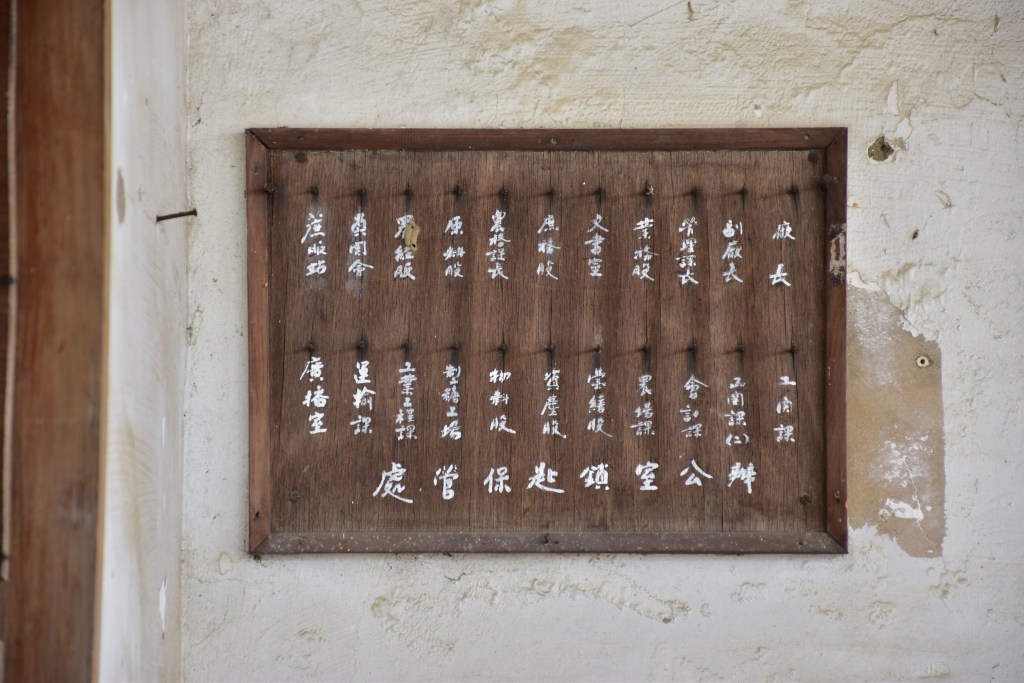 廠長
副廠長
管理課長
業務股
文書室
庶務股
農務課長
原料股
工務課
工務課(二)
會計課
農場課
營繕股
資產股
物料股
製糖工場
工業工程課
運輸課
廣播室
辦公室鎖匙保管處